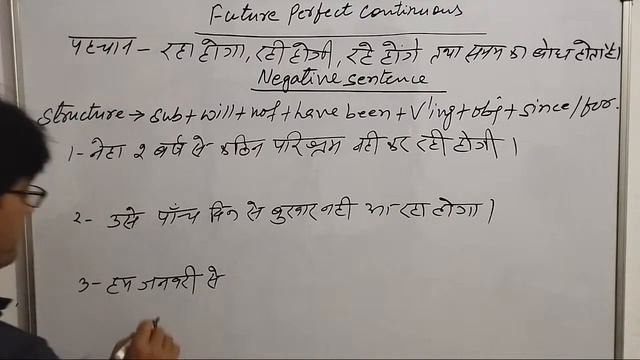 Future Perfect Continuous
पहचान - रहा होगा, रही होगी, रहे होंगे तथा समय का बोध होता है।
Negative sentence
Structure → sub + will + not + have been + V'ing + obj + since/for.
1- नेहा 2 वर्ष से कठिन परिश्रम नही कर रही होगी।
2- उसे पाँच दिन से बुखार नही आ रहा होगा।
3- हम जनवरी से